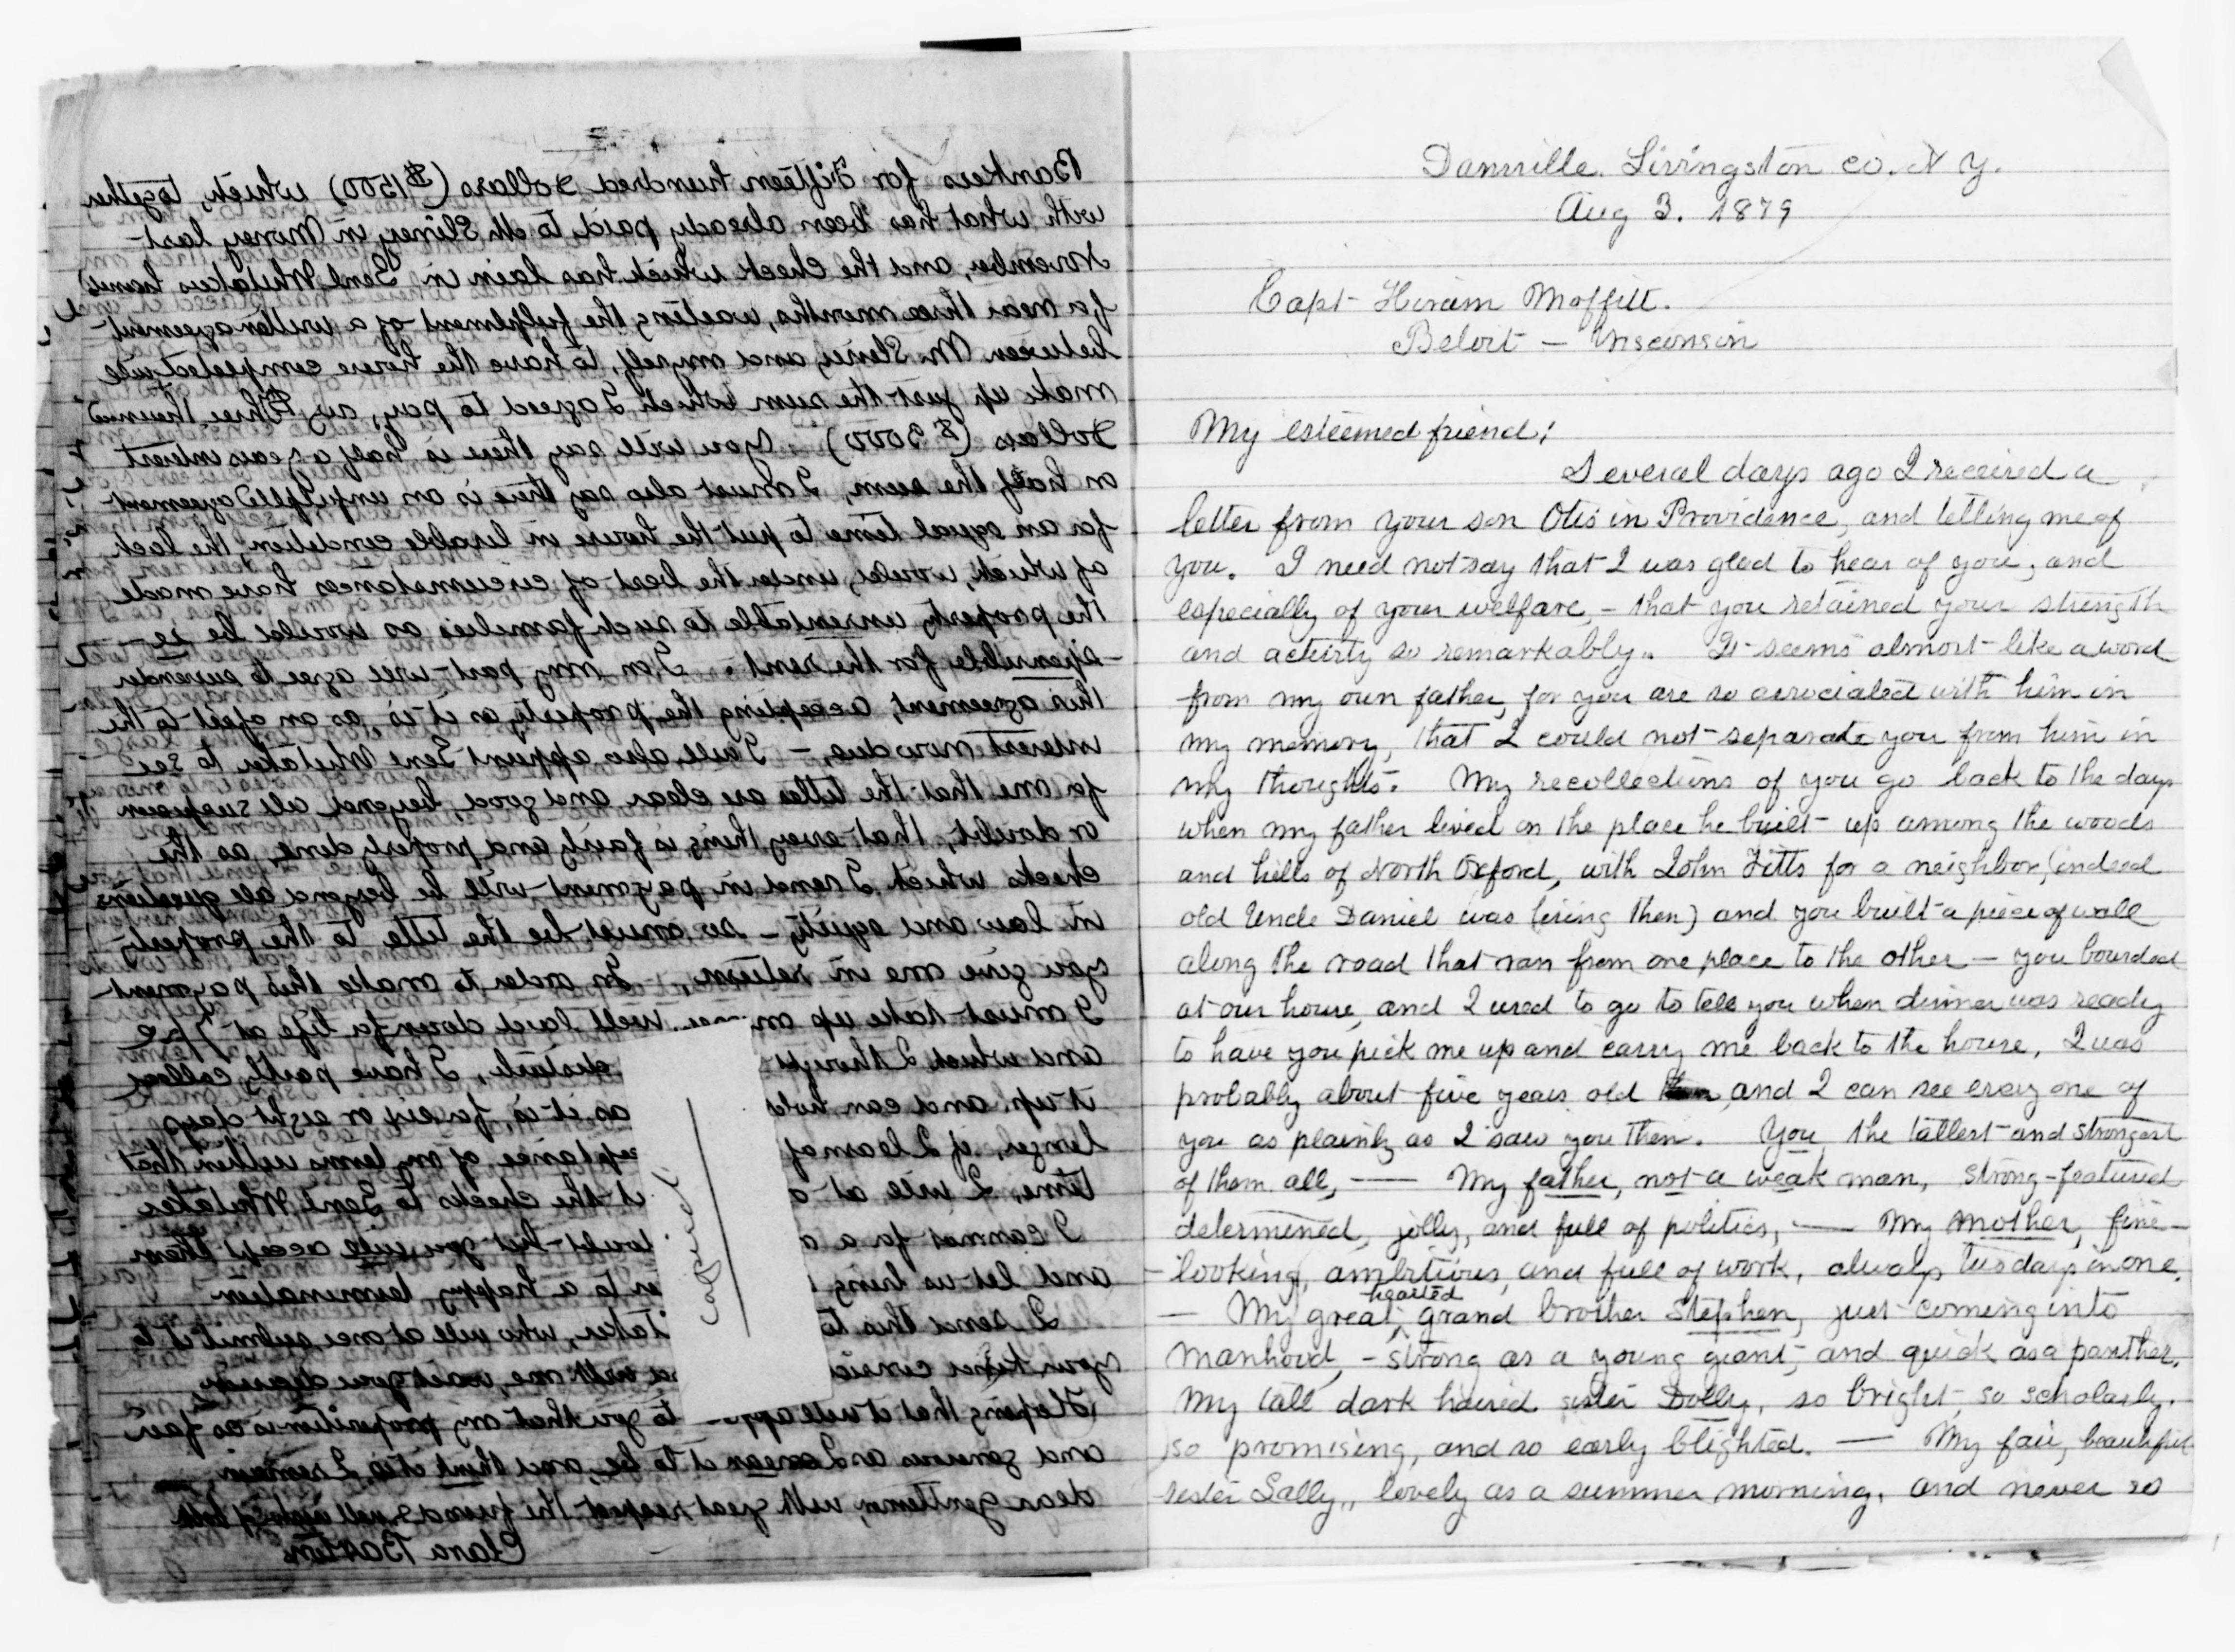 Bankers for Fifteen hundred Dollars ($1500) which, together
with what has been already paid to Mr Sliney in Money last
November, and the Check which has lain in Genl Whitakers hands
for near three months, waiting the fulfilment of a written agreement
between Mr Sliney and myself, to have the house completed will
make up just the sum which I agreed to pay, viz, Three thousand
Dollars ($3000). You will say there is half a years interest
on half the sum, I must also say there is an unfulfilled agreement
for an equal time to put the house in livable condition the lack
of which, would, under the best of circumstances have made
the property unrentable to such families as would be re-
sponsible for the rent. I on my part will agree to surrender
this agreement, accepting the property as it is, as an offset to the
interest now due, — I will also appoint Genl Whitaker to see
for me that the titles are clear and good, beyond all suspicion
or doubt, that every thing is fairly and properly done, as the
checks which I send in payment will be beyond all questions
in law and equity — so must be the title to the property
you give me in return. In order to make this payment
I must take up laid down for a life at 7 pc
and which I thought I have partly called
it up and can hold as it is, for six or eight days
longer, if I learn of of my terms within that
time, I will at the checks to Genl Whitaker
I cannot for a that you will accept them
and let us bring a happy termination
I send this to who will at once submit it to
your kind
Hoping that it will to you that my proposition is as fair
and generous as I mean it to be, and think it is I remain
dear gentlemen, with great respect the friend & well wisher of both
Clara Barton
copied
Dansville. Livingston co. N Y.
Aug 3. 1879
Capt Hiram Moffitt.
Beloit — Wisconsin
My esteemed friend;
Several days ago I received a
letter from your son Otis in Providence, and telling me of
you. I need not say that I was glad to hear of you, and
especially of your welfare, — that you retained your strength
and activity so remarkably. It seems almost like a word
from my own father, for you are so associated with him in
my memory, that I could not separate you from him in
my thoughts. My recollections of you go back to the days
when my father lived on the place he built up among the woods
and hills of North Oxford, with John Fitts for a neighbor, (indeed
old Uncle Daniel was living then) and you built a piece of wall
along the road that ran from one place to the other — you boarded
at our house, and I used to go to tell you when dinner was ready
to have you pick me up and carry me back to the house, I was
probably about five years old and I can see every one of
you as plainly as I saw you then. You the tallest and strongest
of them all, — My father, not a weak man, strong-featured
determined, jolly, and full of politics, — My mother, fine-
-looking, ambitious, and full of work, always two days in one.
— My great hearted grand brother Stephen, just coming into
manhood, — strong as a young giant, and quick as a panther.
My tall dark haired sister Dolly, so bright, so scholarly.
so promising, and so early blighted. — My fair, beautiful
sister Sally, lovely as a summer morning, and never so